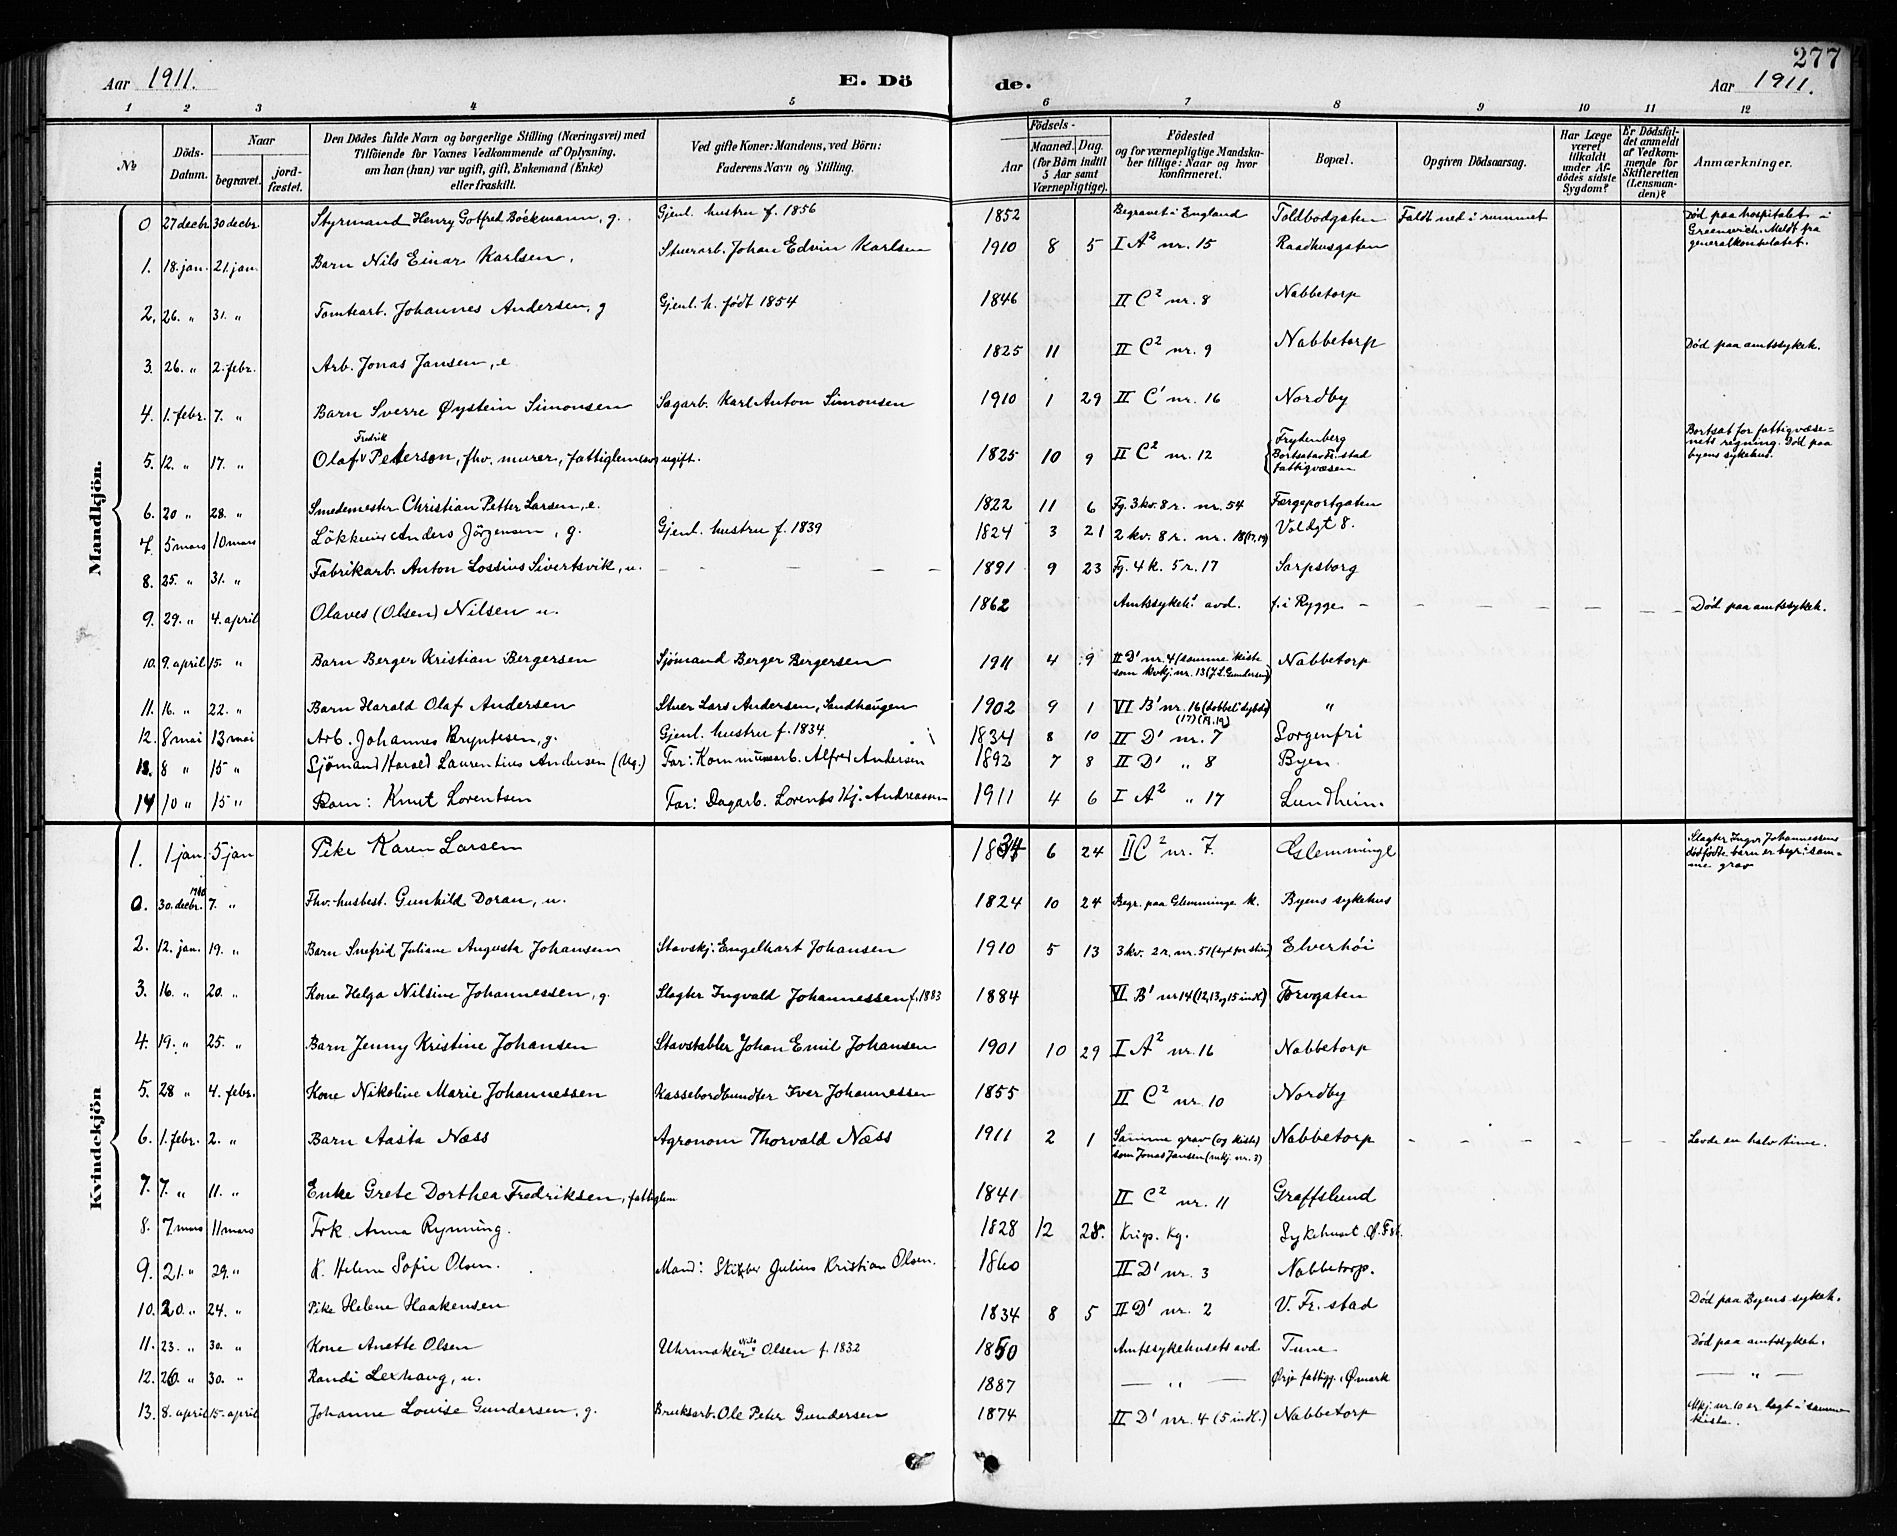 277
Aar 1911. E. Döde. Aar 1911.
1 2 3 4 5 6 7 8 9 10 11 12
No
Döds-Datum.
Naar begravet. jordfæstet.
Den Dödes fulde Navn og borgerlige Stilling (Næringsvei) med Tilföiende for Voxnes Vedkommende af Oplysning, om han (hun) var ugift, gift, Enkemand (Enke) eller fraskilt.
Ved gifte Koner: Mandens, ved Börn: Faderens Navn og Stilling.
Födsels- Aar Maaned. Dag. (for Börn indtil 5 Aar samt Værnepligtige).
Födested og for værnepligtige Mandskaber tillige: Naar og hvor konfirmeret.
Bopæl.
Opgiven Dödsaarsag.
Har Læge været tilkaldt under Afdödes sidste Sygdom?
Er Dödsfaldet anmeldt af Vedkommende for Skifteretten (Lensmanden)?
Anmærkninger.
Mandkjön.
0 27 decbr. 30 decbr. Styrmand Henry Gotfred Böckmann, g. Gjenl. hustru f. 1856 1852 Begravet i England Toldbodgaten Faldt ned i rummet Död paa hospitalet i Greenwich. Meldt fra generalkonsulatet.
1. 18. jan. 21. jan. Barn Nils Einar Karlsen, Stuerarb. Johan Edvin Karlsen 1910 8 5 I A² nr. 15 Raadhusgaten
2. 26. " 31. " Tomtearb. Johannes Andersen, g Gjenl. h. født 1854 1846 II C² nr. 8 Nabbetorp
3. 26. " 2. febr. Arb. Jonas Jansen, e 1825 11 II C² nr. 9 Nabbetorp Död paa amtssykeh.
4. 1. febr. 7. " Barn Sverre Øystein Simonsen Sagarb. Karl Anton Simonsen 1910 1 29 II C' nr. 16 Nordby
5. 12. " 17. " Olaf Fredrik Peterson, fhv. murer, fattiglem og ugift. 1825 10 9 II C² nr. 12 Frydenberg Bortsat av Fr.stad fattigvæsen Bortsat for fattigvæsenets regning. Död paa byens sykehus.
6. 20 " 28. " Smedemester Christian Petter Larsen, e. 1822 11 6 Fg. 3 kv. 8 r. nr. 54 Færgeportgaten
7. 5 mars 10 mars Anders Jörgensen, g. Gjenl. hustru f. 1839 1824 3 21 2 kv. 8 r. nr. 18 (17, 19) Voldgt 8.
8. 25. " 31. " Fabrikarb. Anton Lossius Sivertsvik, u. — — — — 1891 9 23 Fg. 4 k. 5 r. 17 Sarpsborg
9. 29. " 4. april Olaves (Olsen) Nilsen u. 1862 Amtssykeh. avd. f. i Rygge — — — — — Död paa amtssykeh.
10. 9. april 15. " Barn Berger Kristian Bergersen Sjömand Berger Bergersen 1911 4 9 II D' nr. 4 (samme kiste som kvkj. nr. 13 (J. L. Gundersen) Nabbetorp
11. 16. " 22. " Barn Harald Olaf Andersen Stuer Lars Andersen, Sandhaugen 1902 9 1 VI B' nr. 16 (dobbelt dybde) "
12. 8 mai 13 mai Arb. Johannes Bryntesen, g. Gjenl. hustru f. 1834. 1834 8 10 II D' nr. 7 Sorgenfri
13. 8 " 15 " Sjömand Harald Laurentius Andersen (Ug.) Far: Kommunearb. Alfred Andersen 1892 7 8 II D' " 8 Byen
14 10 " 15 " Barn: Knut Lorentsen Far: Dagarb. Lorents Kj. Andreassen 1911 4 6 I A² " 17 Lundheim.
Kvindekjön
1. 1 jan. 5 jan Pike Karen Larsen 1834 6 24 II C² nr. 7. Glemminge Slagter Ingv. Johannessens dødfødte barn er begr. i samme grav
0. 30. decbr. 1910 7. " Fhv. husbest. Gunhild Doran, u. 1824 10 24 Begr. paa Glemminge k. Byens sykehus
2. 12. jan. 19. " Barn Snefrid Juliane Augusta Johansen Stavskj. Engelhart Johansen 1910 5 13 3 kv. 2 r. nr. 51 (syd for stien) Elverhöi
3. 16. " 20. " Kone Helga Nilsine Johannessen, g. Slagter Ingvald Johannessen f. 1883 1884 VI B' nr 14 (12, 13 og 15 indk.) Torvgaten
4. 19. " 25. " Barn Jenny Kristine Johansen Stavstabler Johan Emil Johansen 1901 10 29 I A² nr. 16 Nabbetorp
5. 28 " 4. febr. Kone Nikoline Marie Johannessen Kassebordbundter Iver Johannessen 1855 II C² nr. 10 Nordby
6. 1. febr. 2. " Barn Aasta Næss Agronom Thorvald Næss 1911 2 1 Samme grav (og kiste) som Jonas Jansen (mkj. nr. 3) Nabbetorp — — — — — Levde en halv time.
7. 7. " 11. " Enke Grete Dorthea Fredriksen, fattiglem 1841 II C² nr. 11 Graffslund
8. 7. mars 11 mars Frk Anna Rynning. 1828 12 28. Krigs. kg. Sykehuset Ø. Fst.
9. 21. " 29. " K. Helene Sofie Olsen. Mand: Skipper Julius Kristian Olsen. 1860 II D' nr. 3 Nabbetorp.
10. 20. " 24. " Pike Helene Haakensen 1834 8 5 II D' nr. 2 V. Fr.stad Död paa Byens sykeh.
11. 23. " 30. " Kone Anette Olsen Uhrmaker Nils Olsen f. 1832 1850 Amtssykehusets avd Tune Död paa amtssykeh.
12. 26. " 30. " Randi Lexhaug, u. 1887 — " — Ørje fattigg., Ømark — " —
13. 8. april 15. april Johanne Louise Gundersen, g. Bruksarb. Ole Peter Gundersen 1874 II D' nr. 4 (5 indk.) Nabbetorp Mkj. nr. 10 er lagt i samme kiste.